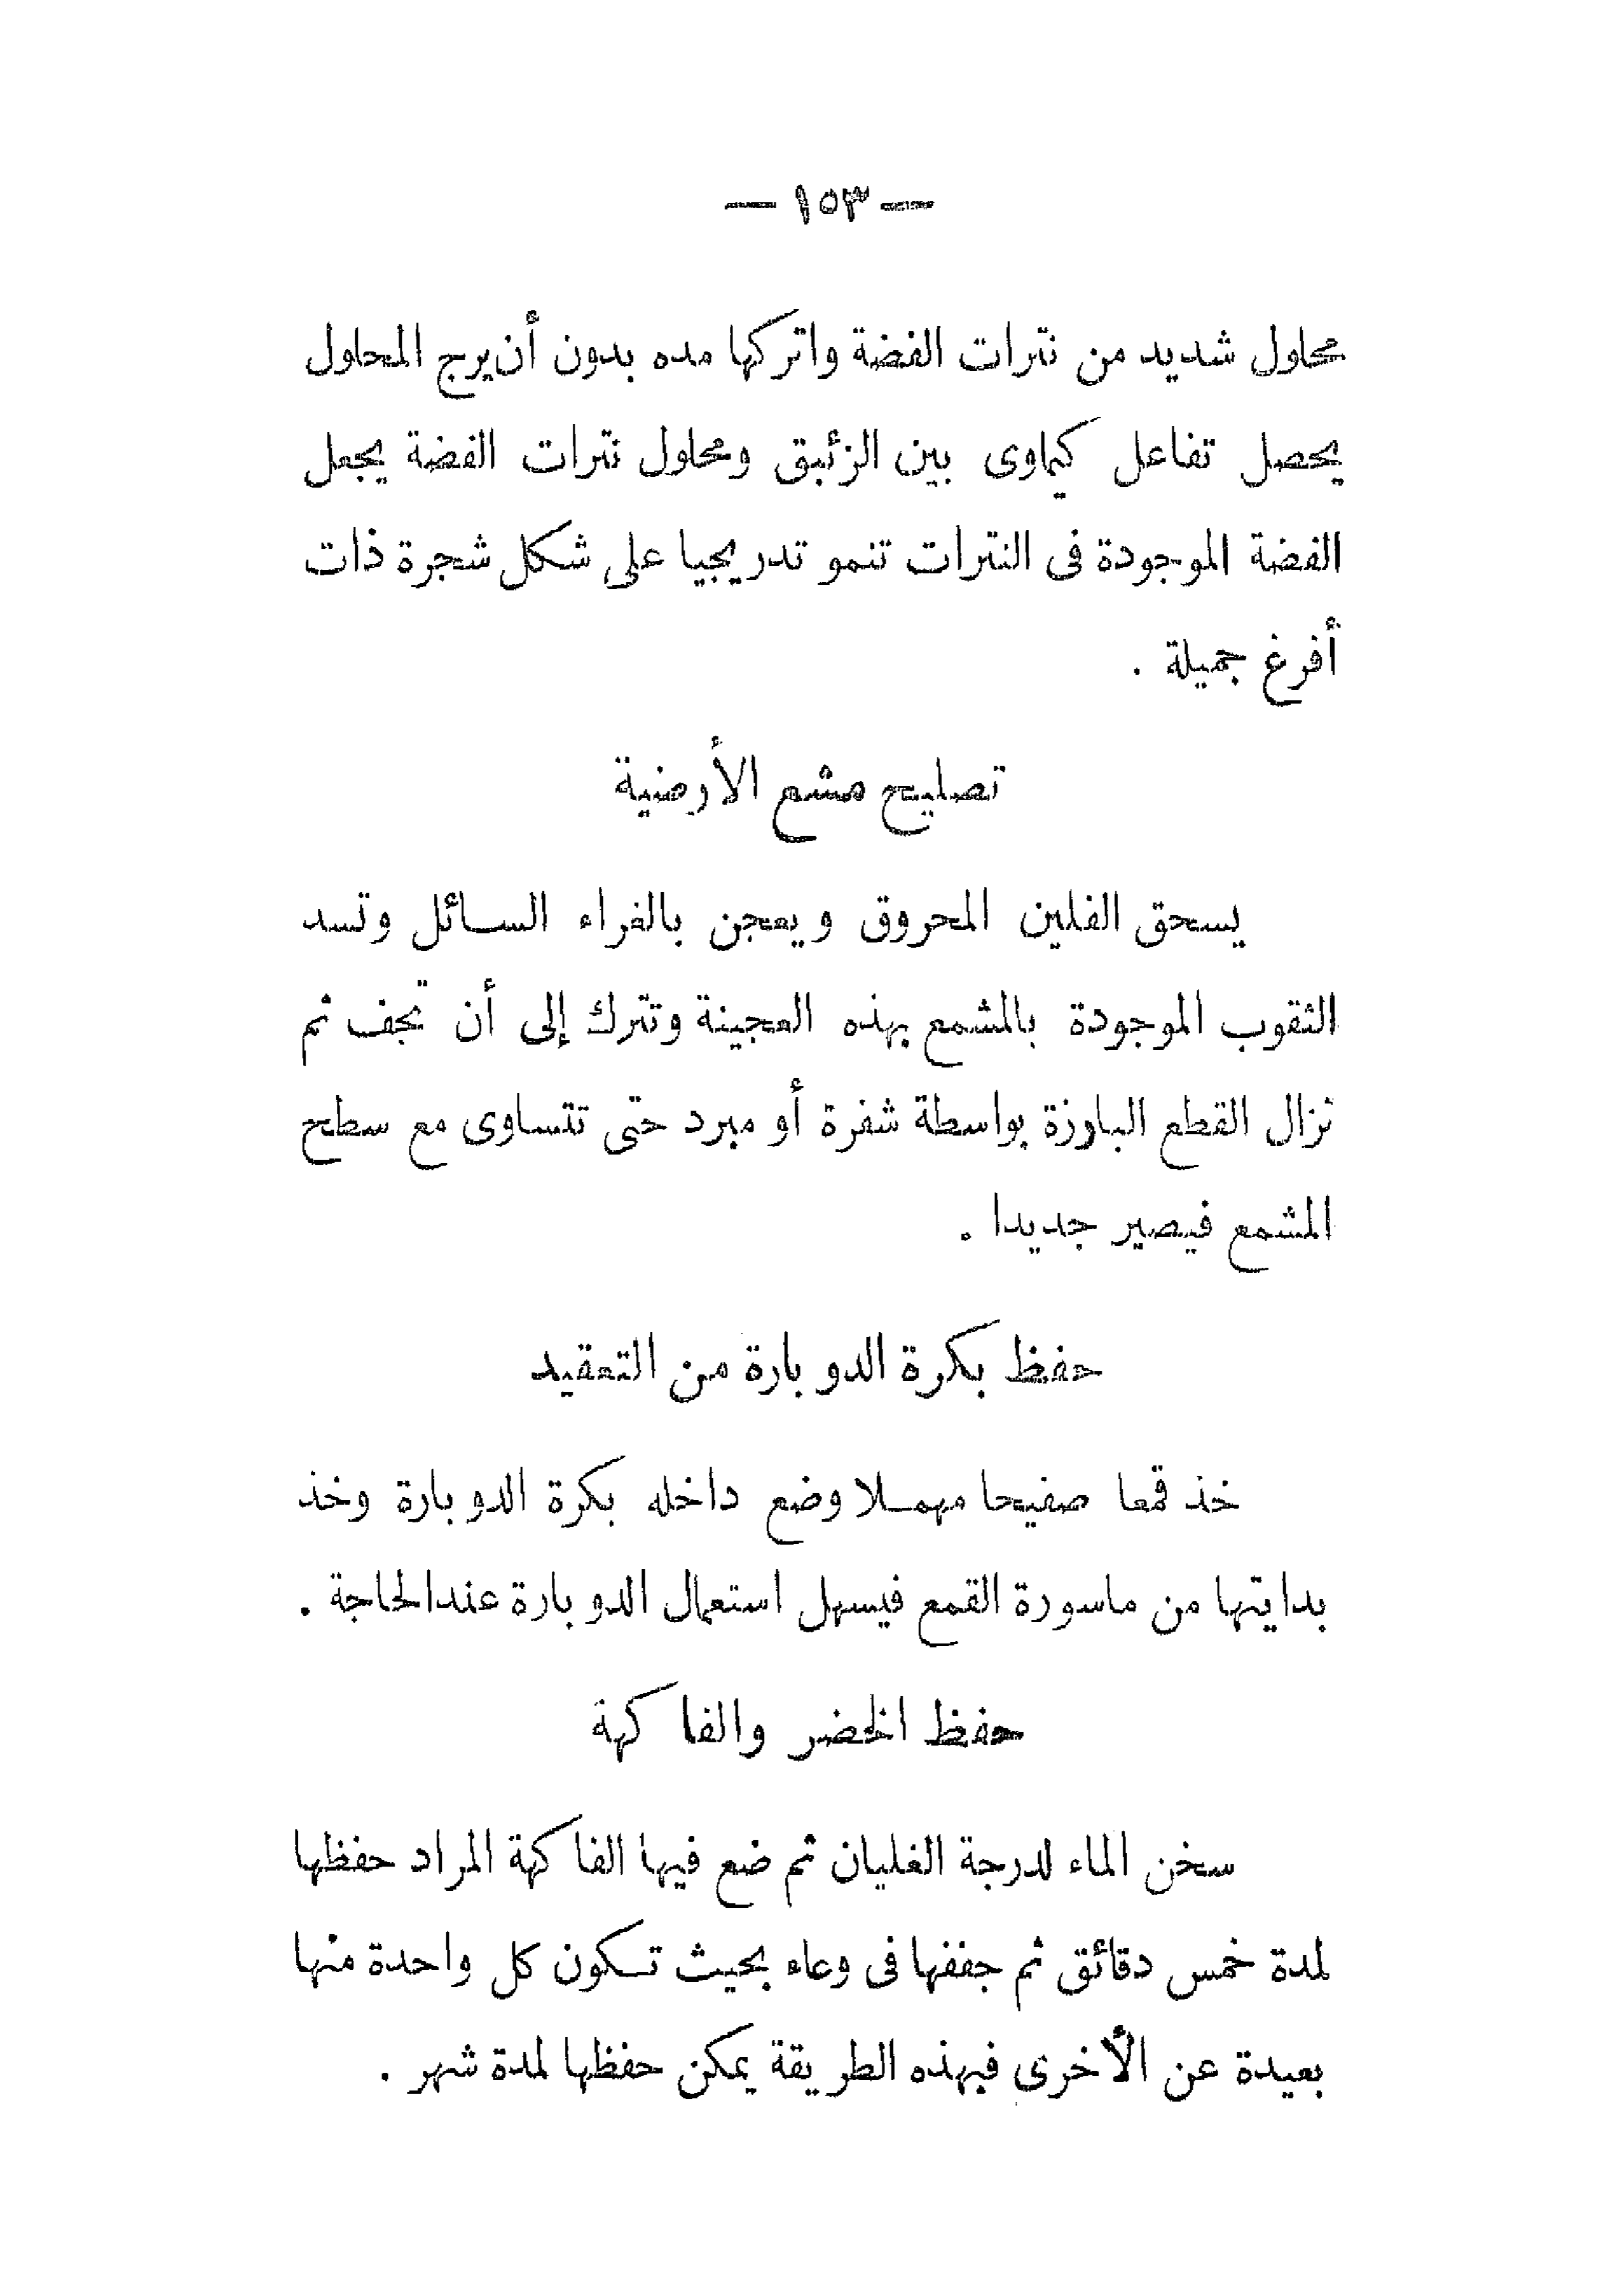 — ١٥٣ —
محلول شديد من نترات الفضة واتركها مده بدون أن يرج المحلول
يحصل تفاعل كيماوى بين الزئبق ومحلول نترات الفضة يجعل
الفضة الموجودة فى النترات تنمو تدريجيا على شكل شجرة ذات
أفرغ جميلة .
تصليح مشمع الأرضية
يسحق الفلين المحروق ويعجن بالغراء السائل وتسد
الثقوب الموجودة بالمشمع بهذه العجينة وتترك إلى أن تجف ثم
تزال القطع البارزة بواسطة شفرة أو مبرد حتى تتساوى مع سطح
المشمع فيصير جديدا .
حفظ بكرة الدوبارة من التعقيد
خذ قمعا صفيحا مهملا وضع داخله بكرة الدوبارة وخذ
بدايتها من ماسورة القمع فيسهل استعمال الدوبارة عند الحاجة .
حفظ الخضر والفاكهة
سخن الماء لدرجة الغليان ثم ضع فيها الفاكهة المراد حفظها
لمدة خمس دقائق ثم جففها فى وعاء بحيث تكون كل واحدة منها
بعيدة عن الأخرى فبهذه الطريقة يمكن حفظها لمدة شهر .